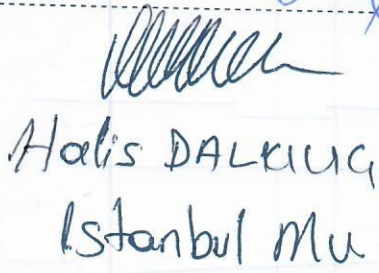 Halis DALKILIÇ
Istanbul Mu